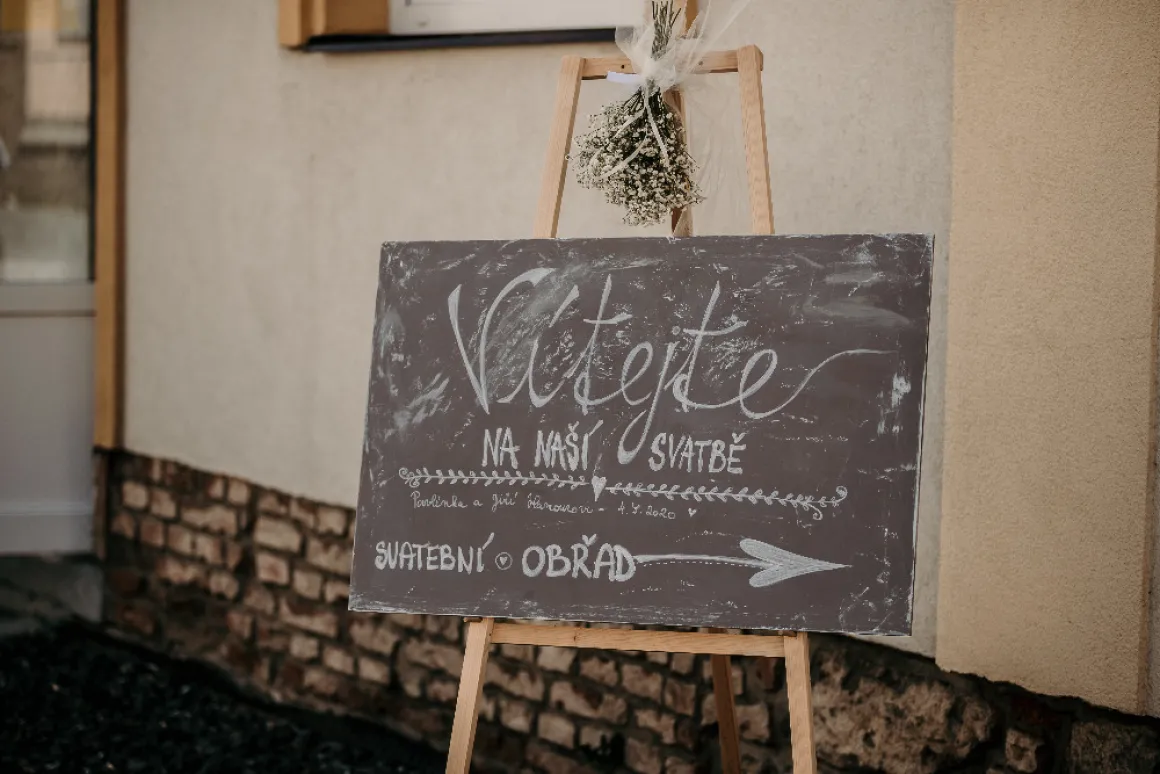 Vítejte
NA NAŠÍ SVATBĚ
Pavlínka a Jiří - 4.7.2020
SVATEBNÍ OBŘAD